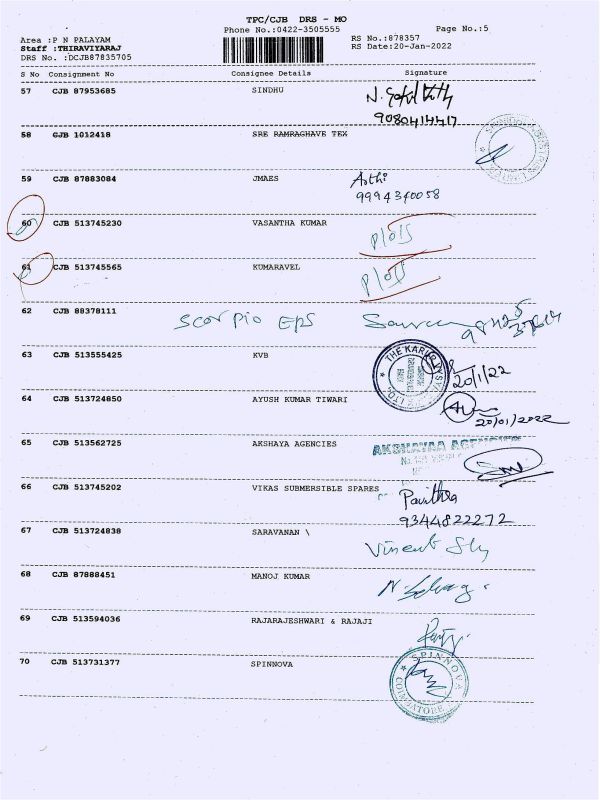 TPC/CJB DRS - MO
Phone No.:0422-3505555
Page No.:5
Area :P N PALAYAM
RS No.:878357
Staff :THIRAVIYARAJ
RS Date:20-Jan-2022
DRS No. :DCJB87835705
S No Consignment No Consignee Details Signature
57 CJB 87953685 SINDHU
9080414417
58 GJB 1012418 SRE RAMRAGHAVE TEX
59 CJB 87883084 JMAES Asthi
9994340058
60 CJB 513745230 VASANTHA KUMAR
61 CJB 513745565 KUMARAVEL
62 CJB 88378111
Scorpio EPS
63 CJB 513555425 KVB
THE KARUR VYSYA
20/1/22
64 CJB 513724850 AYUSH KUMAR TIWARI
20/01/2022
65 CJB 513562725 AKSHAYA AGENCIES
AKSHAYAA AGENCIES
66 CJB 513745202 VIKAS SUBMERSIBLE SPARES Pavithra
9344822272
67 CJB 513724838 SARAVANAN \
Vincent
68 CJB 87888451 MANOJ KUMAR
69 CJB 513594036 RAJARAJESHWARI & RAJAJI
70 CJB 513731377 SPINNOVA
SPINNOVA
COIMBATORE